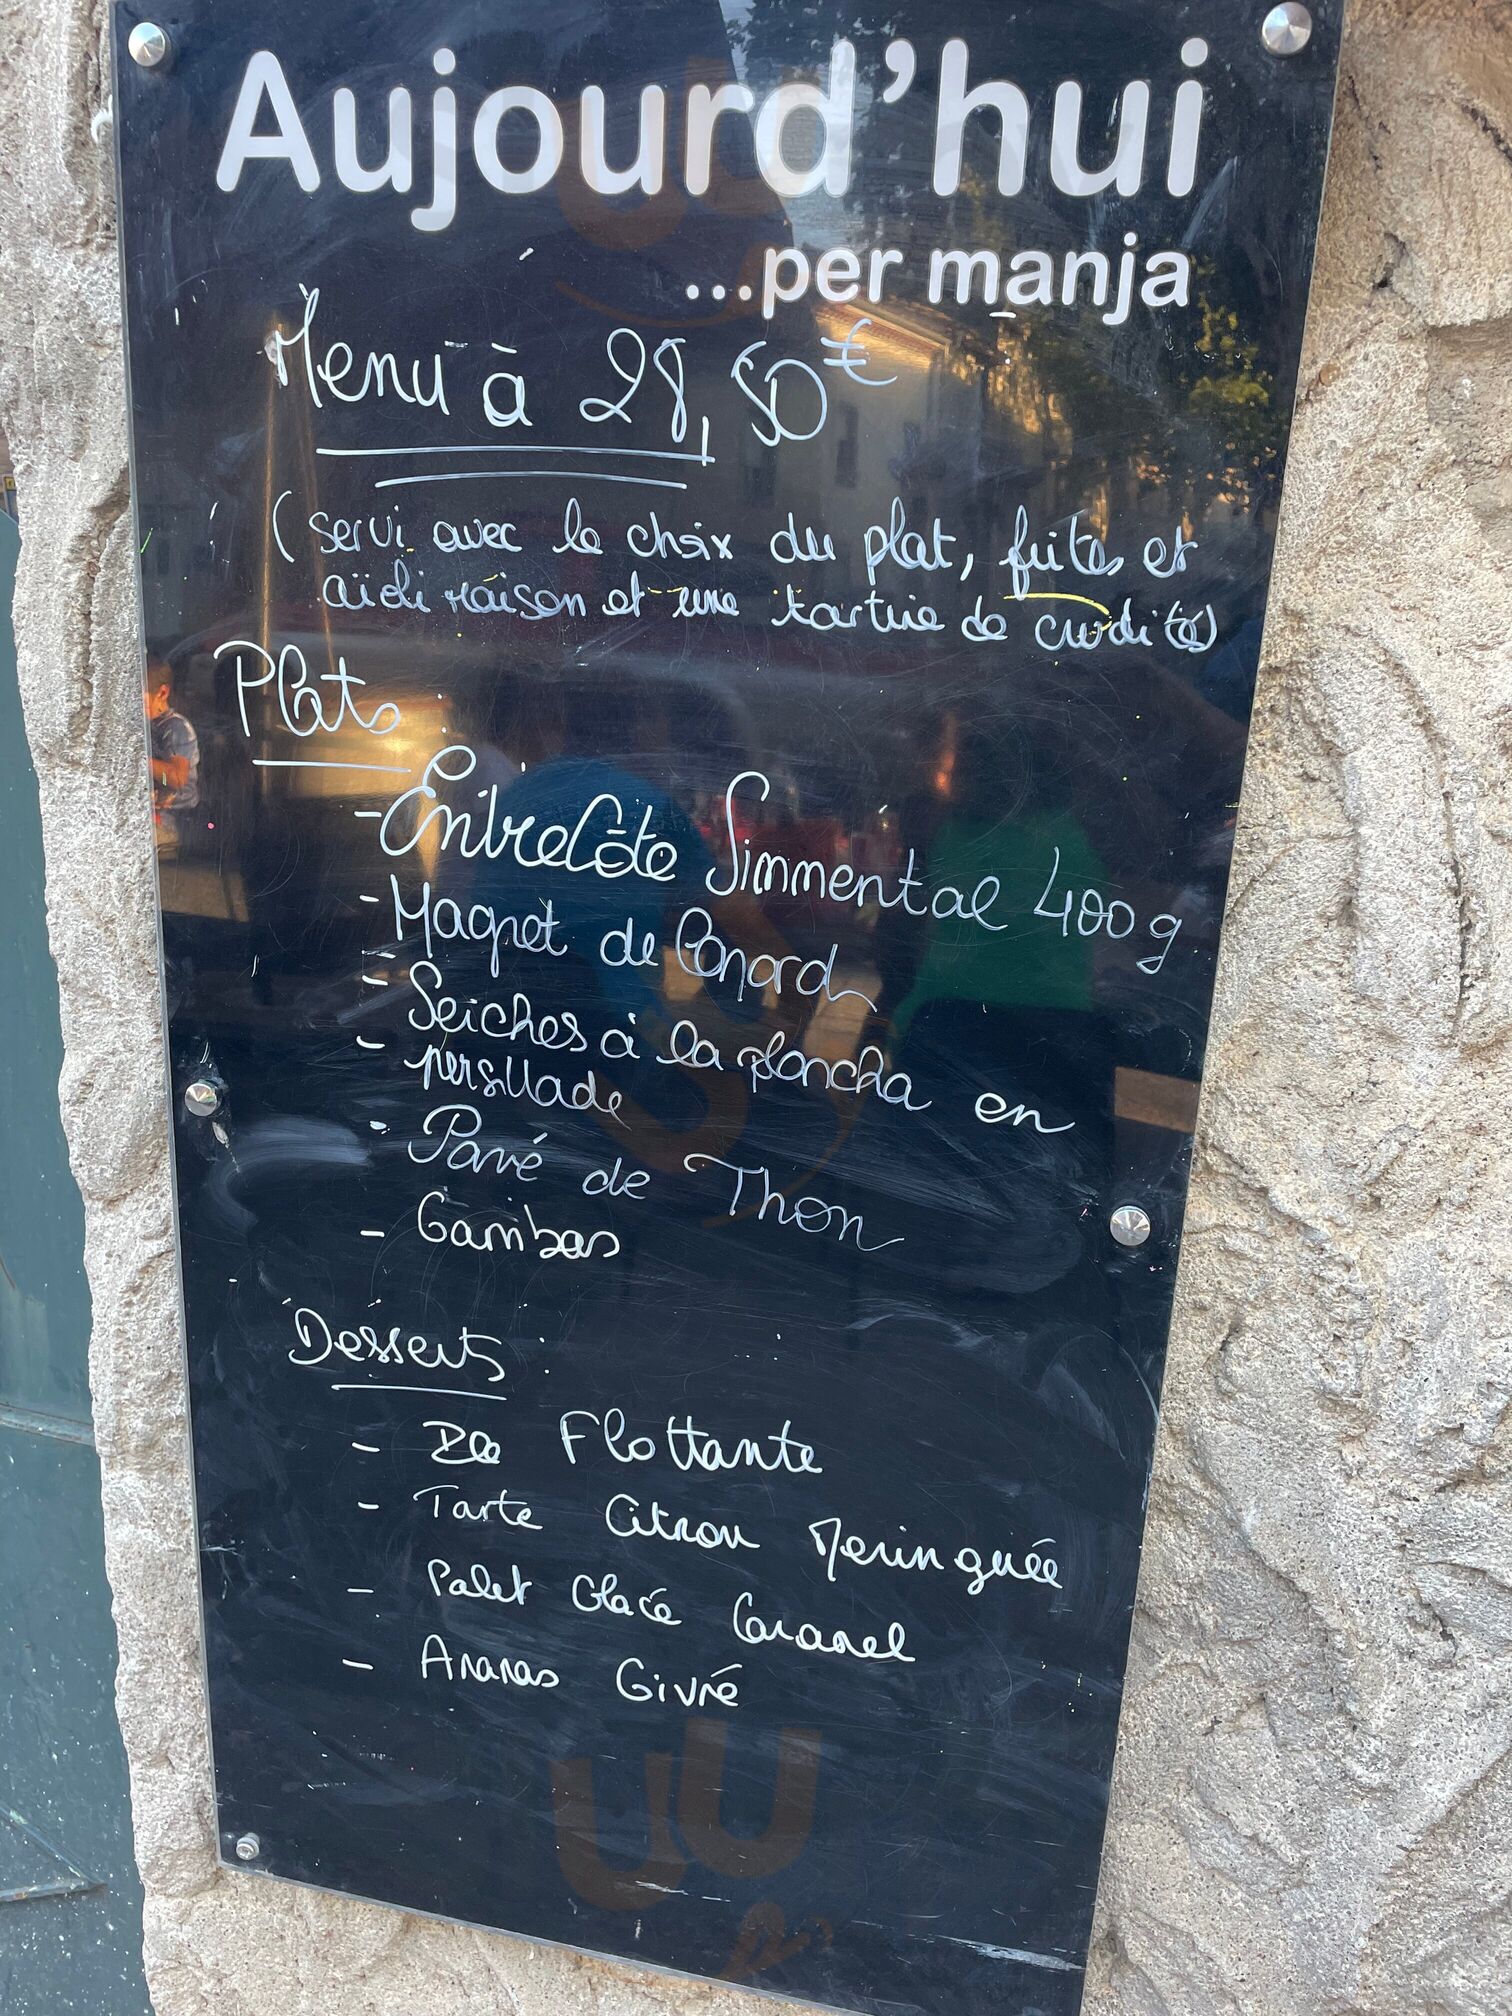 Aujourd'hui
...per manja
Menu à 28,50€
(servi avec le choix du plat, frites et
aïoli maison et une tartine de crudités)
Plats :
- EntreCôte Simmental 400g
- Magret de Canard
- Seiches à la plancha en
- persillade
- Pavé de Thon
- Gambas
Desserts :
- Ile Flottante
- Tarte Citron Meringuée
- Palet Glacé Caramel
- Ananas Givré